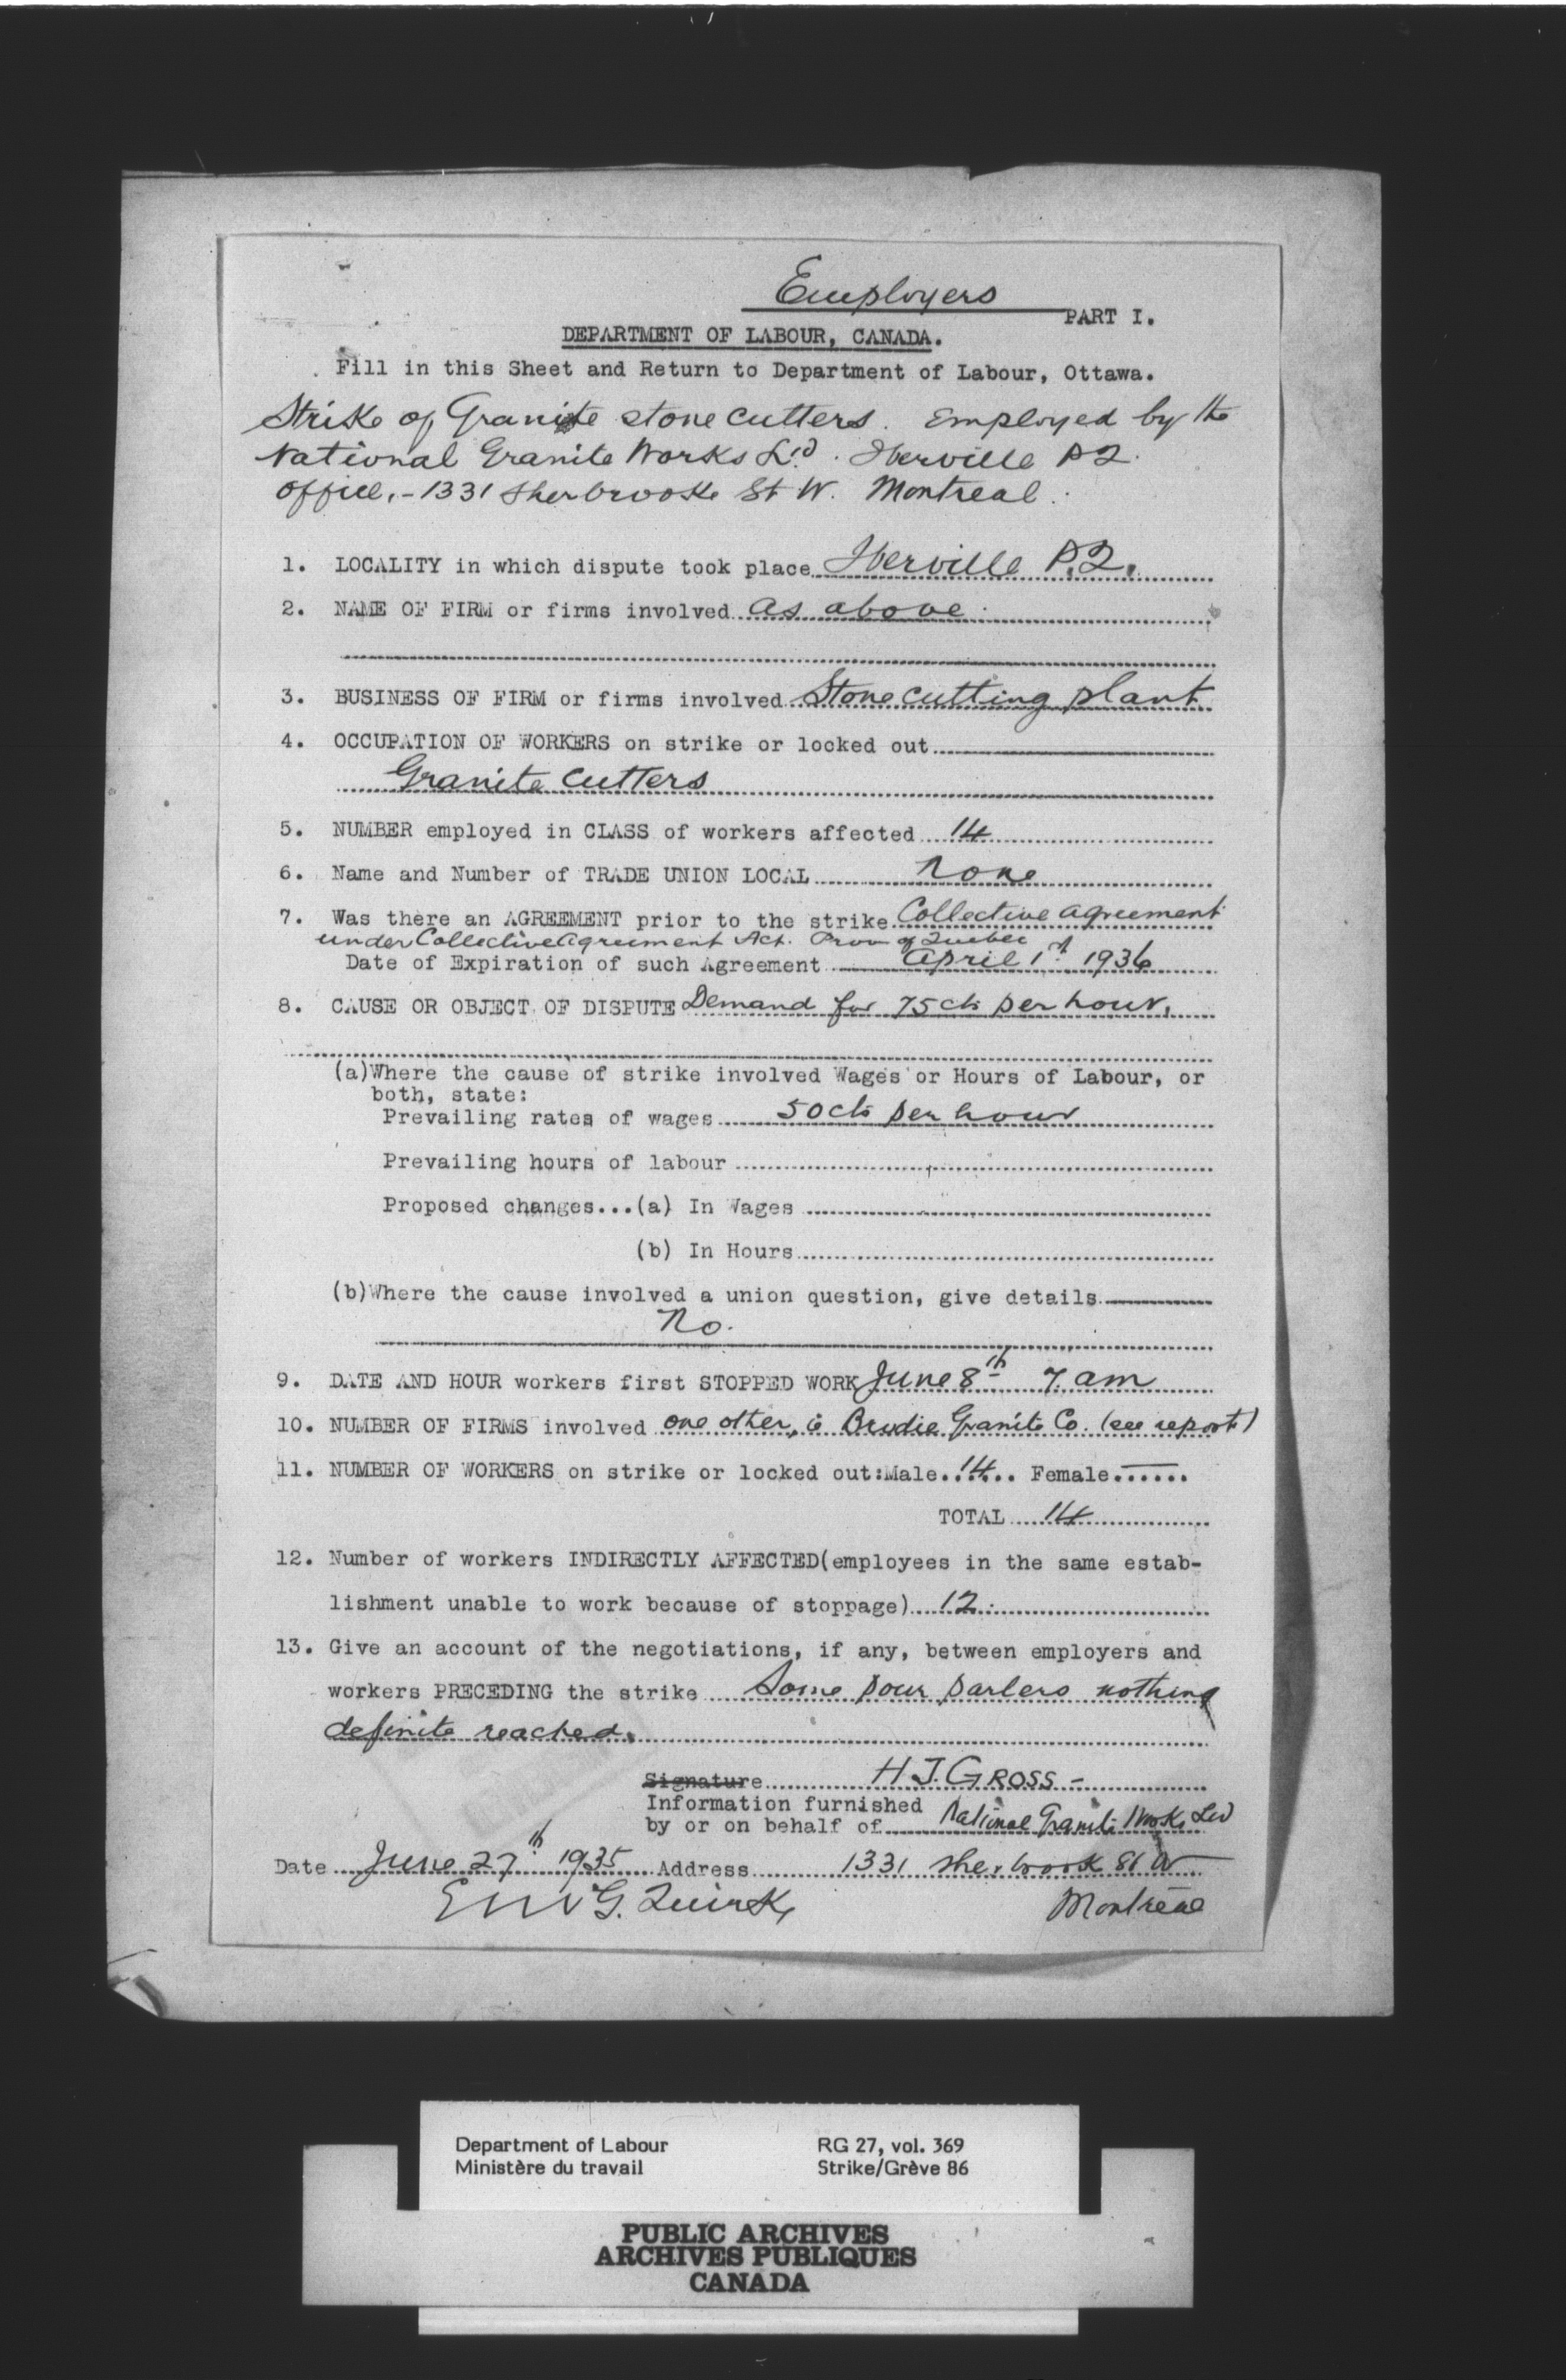 Employers
PART I.
DEPARTMENT OF LABOUR, CANADA.
Fill in this Sheet and Return to Department of Labour, Ottawa.
Strike of Granite stone cutters. Employed by the
National Granite Works Ltd. Iberville P.Q.
Office,-1331 Sherbrooke St W. Montreal.
1. LOCALITY in which dispute took place Iberville P.Q.
2. NAME OF FIRM or firms involved as above.
3. BUSINESS OF FIRM or firms involved Stone cutting plant
4. OCCUPATION OF WORKERS on strike or locked out
Granite Cutters
5. NUMBER employed in CLASS of workers affected 14
6. Name and Number of TRADE UNION LOCAL none
7. Was there an AGREEMENT prior to the strike Collective agreement
under Collective Agreement Act. Prov of Quebec
Date of Expiration of such Agreement April 1st 1936
8. CAUSE OR OBJECT OF DISPUTE Demand for 75 cts per hour.
(a)Where the cause of strike involved Wages or Hours of Labour, or
both, state:
Prevailing rates of wages 50 cts per hour
Prevailing hours of labour
Proposed changes...(a) In Wages
(b) In Hours
(b)Where the cause involved a union question, give details
No.
9. DATE AND HOUR workers first STOPPED WORK June 8th 7. am
10. NUMBER OF FIRMS involved one other, ie Brodie Granite Co. (see report)
11. NUMBER OF WORKERS on strike or locked out:Male..14... Female......
TOTAL 14
12. Number of workers INDIRECTLY AFFECTED(employees in the same estab-
lishment unable to work because of stoppage) 12.
13. Give an account of the negotiations, if any, between employers and
workers PRECEDING the strike Some pour parlers nothing
definite reached.
Signature H J. GROSS -
Information furnished
by or on behalf of National Granite Works Ltd
Date June 27th 1935 Address 1331 Sherbrook St W
E McG. Quirk, Montreal
Department of Labour RG 27, vol. 369
Ministère du travail Strike/Grève 86
PUBLIC ARCHIVES
ARCHIVES PUBLIQUES
CANADA